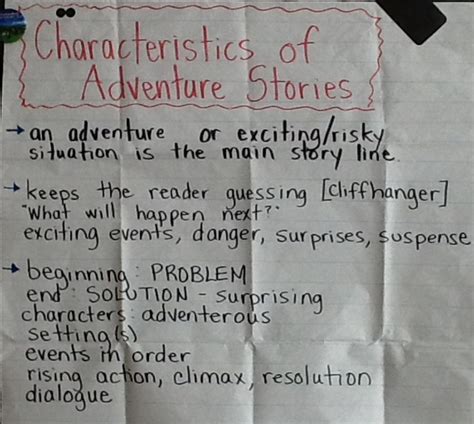 Characteristics of
Adventure Stories
→ an adventure or exciting/risky
situation is the main story line.
→ keeps the reader guessing [cliffhanger]
"What will happen next?"
exciting events, danger, surprises, suspense
→ beginning: PROBLEM
end: SOLUTION - surprising
characters: adventerous
setting(s)
events in order
rising action, climax, resolution
dialogue